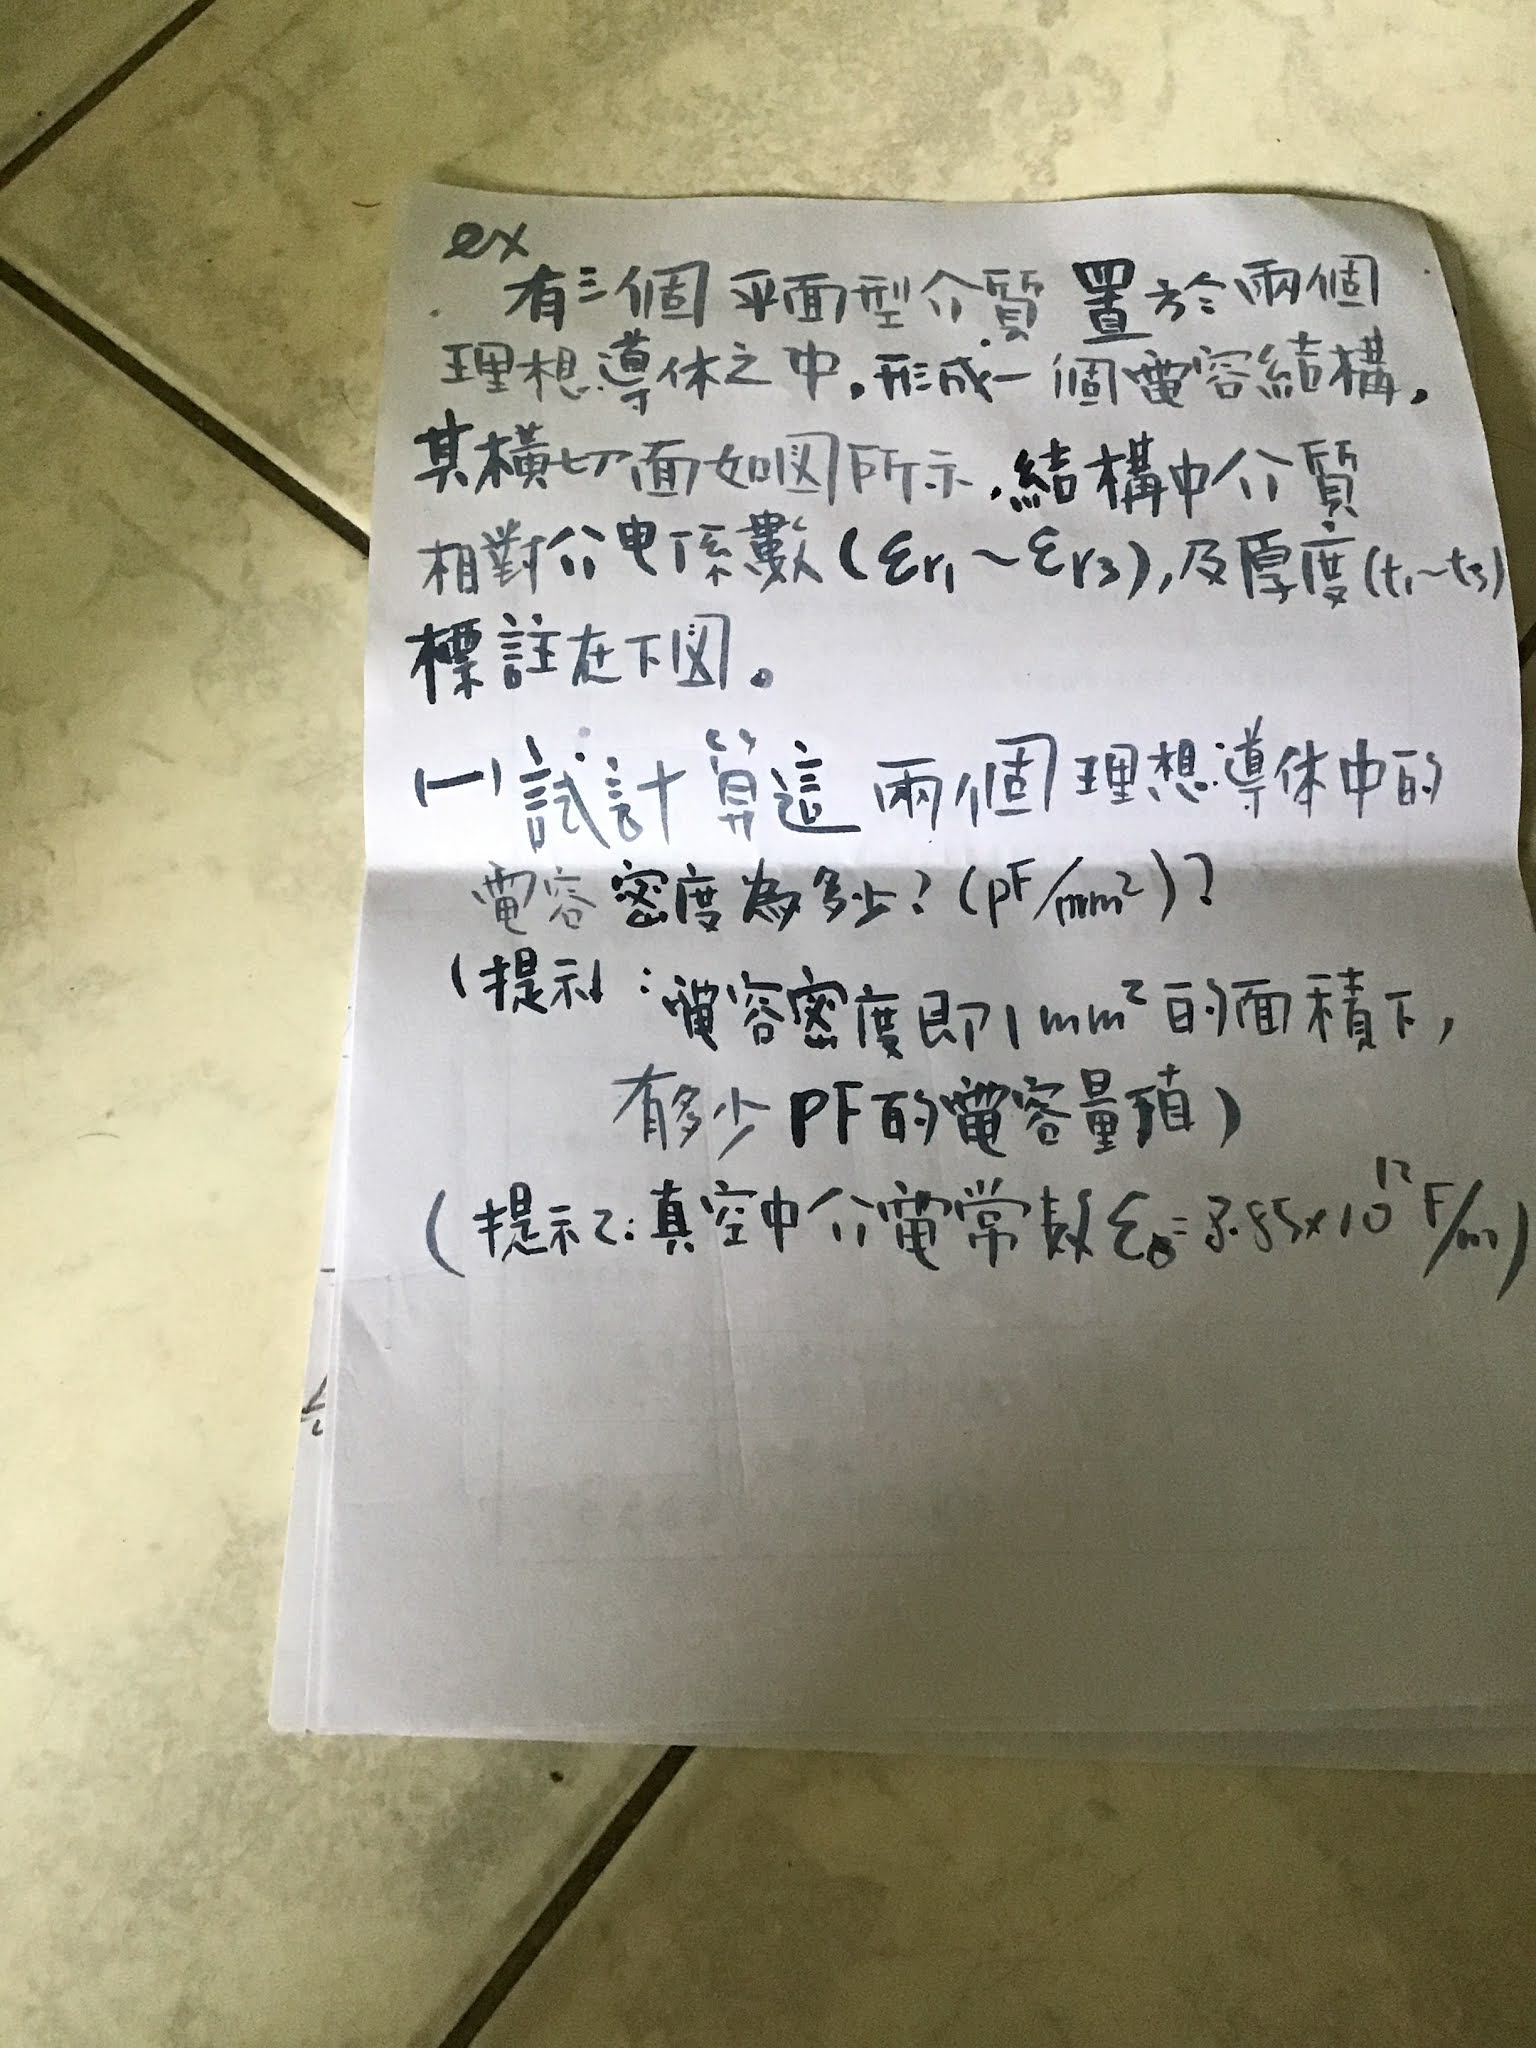 ex
有三個平面型介質置於兩個
理想導体之中,形成一個電容結構,
其橫切面如図所示,結構中介質
相對介电係數(εr1～εr3),及厚度(t1～t3)
標註在下図。
(一)試計算這兩個理想導体中的
電容密度為多少?(pF/mm²)?
(提示1:電容密度即1mm²的面積下,
有多少PF的電容量值)
(提示2:真空中介電常数ε0=8.85×10¹² F/m)